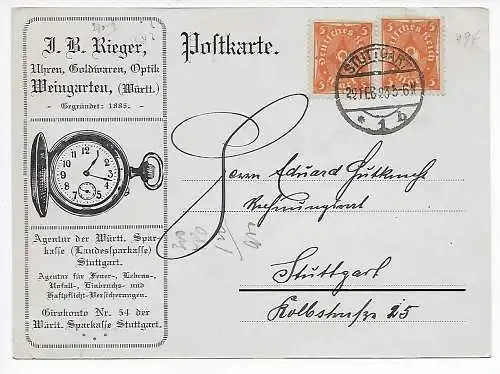 J. B. Rieger,
Uhren, Goldwaren, Optik
Weingarten, (Württ.)
Gegründet: 1885.
Agentur der Württ. Spar-
kasse (Landessparkasse)
Stuttgart.
Agentur für Feuer-, Lebens-,
Unfall-, Einbruchs- und
Haftpflicht-Versicherungen.
Girokonto Nr. 54 der
Württ. Sparkasse Stuttgart.
Postkarte.
5 Deutsches Reich 5
5 Deutsches Reich 5
STUTTGART
FEB 23 5-6N
* 1 b
Herrn Eduard Gutknecht
Rechnungsrat
Stuttgart
Kolbstraße 25